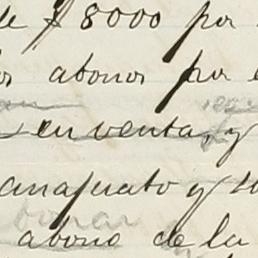 de $8000 por
os abonos por
en venta, y
anajuato y su
abono de la